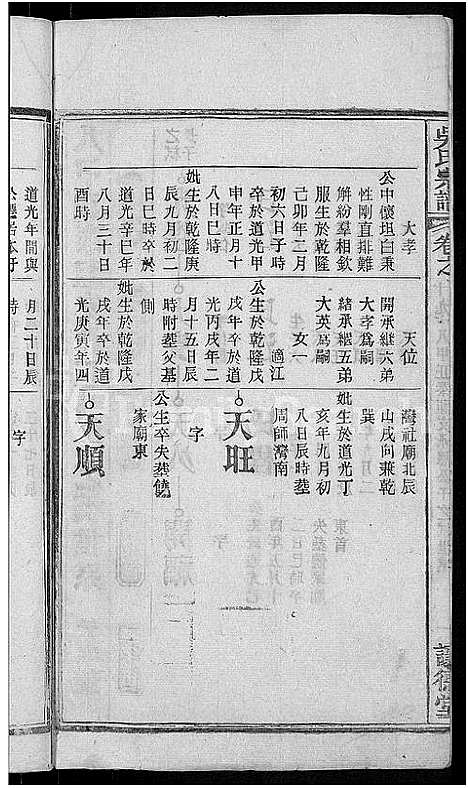 吳氏宗譜
卷之
讓德堂
大孝
公中懷坦白秉
性剛直排難
解紛羣相欽
服生於乾隆
己卯年二月
初六日子時
卒於道光甲
申年正月十
八日巳時
妣生於乾隆庚
辰九月初二
日巳時卒於
道光辛巳年
八月三十日
酉時
天位
開承繼六弟
大孝爲嗣
緒承繼五弟
大英爲嗣
女一 適江
公生於乾隆戊
戌年卒於道
光丙戌年二
月十五日辰
時附塟父墓
側
妣生於乾隆戊
戌年卒於道
光庚寅年四
灣社廟北辰
山戌向兼乾
巽
妣生於道光丁
亥年九月初
八日辰時塟
周師灣南
天旺
字
公生卒失塟饒
家廟東
天順
道光年間與
月二十日辰
時
字